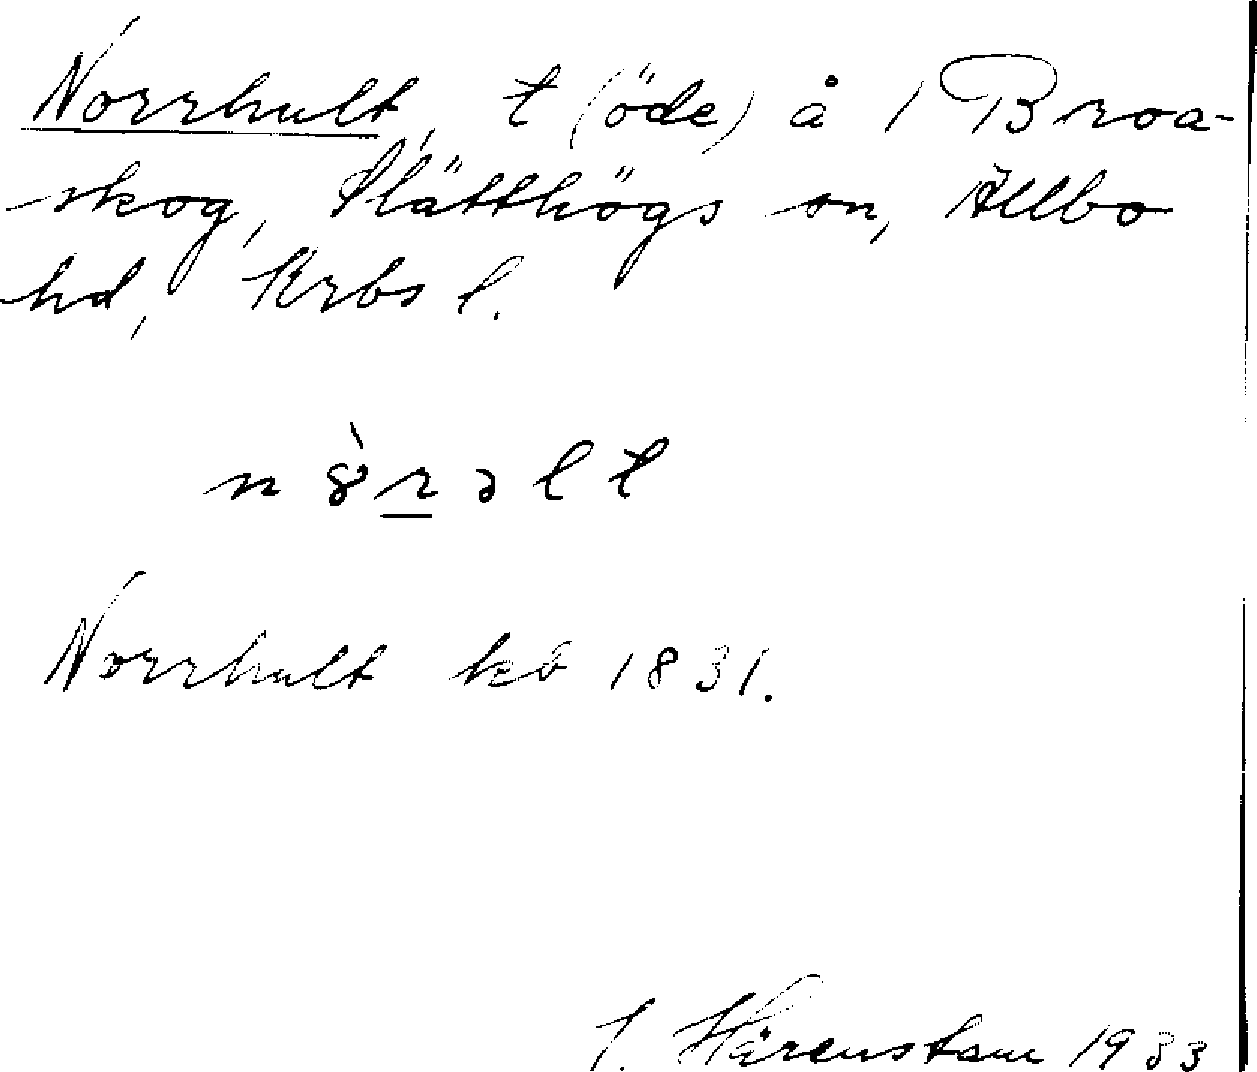 Norrhult, t (öde) å 1 Broa-
skog, Slätthögs sn, Allbo
hd, Krbs l.
n ȣ̀ r̲ ə l t
Norrhult kb 1831.
J. Hårenstam 1933